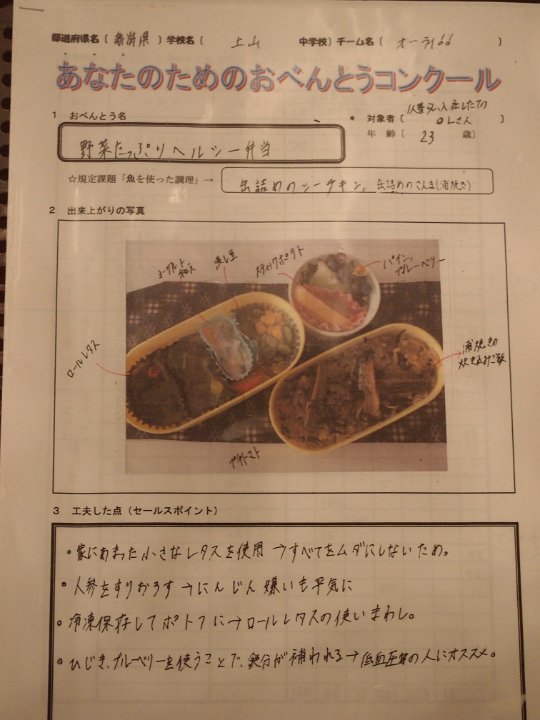 都道府県名（新潟県）学校名（上山 中学校）チーム名（オーラ166）
あなたのためのおべんとうコンクール
1 おべんとう名
野菜たっぷりヘルシー弁当
* 対象者〔OLさん
年 齢〔 23 歳〕
☆規定課題「魚を使った調理」→ 缶詰めのシーチキン、缶詰めのさんま(蒲焼き)
2 出来上がりの写真
蒸し豆
スティックポテト
パイン、ブルーベリー
ロールレタス
蒲焼きの炊き込みご飯
プチトマト
3 工夫した点（セールスポイント）
・家にあまった小さなレタスを使用→すべてをムダにしないため。
・人参をすりおろす→にんじん嫌いも平気に
・冷凍保存してポトフに→ロールレタスの使いまわし。
・ひじき、ブルーベリーを使うことで、鉄分が補われる→低血圧等の人にオススメ。